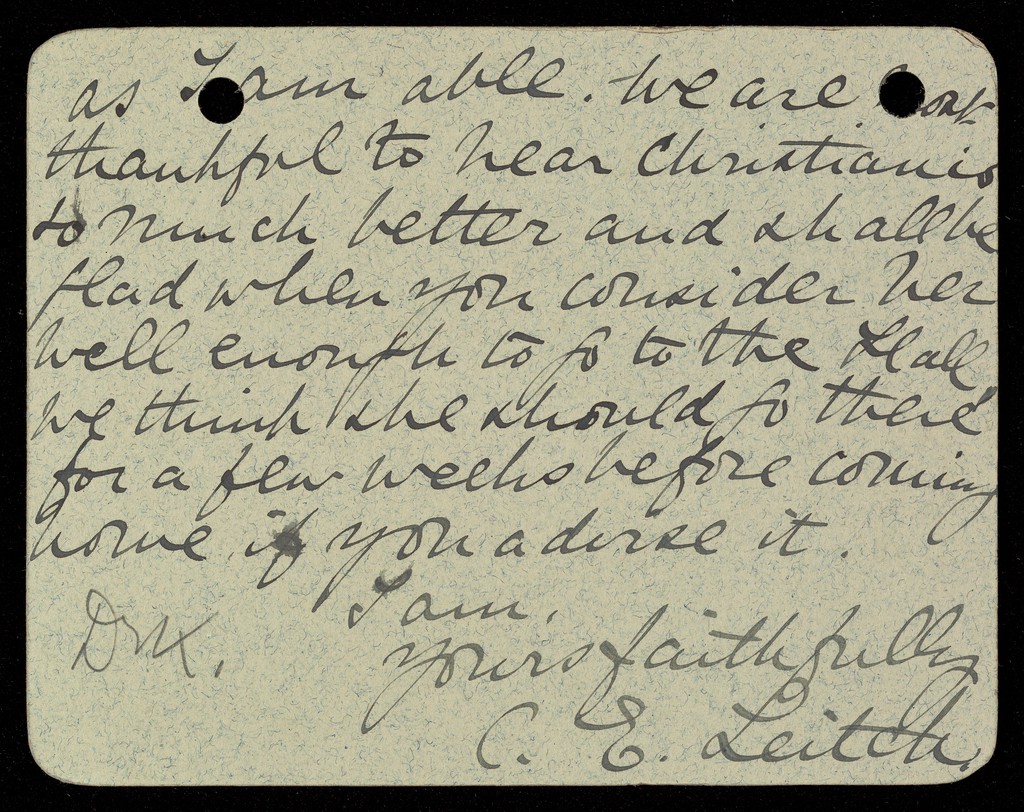 as I am able. We are most
thankful to hear Christian is
so much better and shall be
glad when you consider her
well enough to go to the Hall,
we think she should go there
for a few weeks before coming
home if you advise it.
I am.
Yours faithfully
C. E. Leitch.